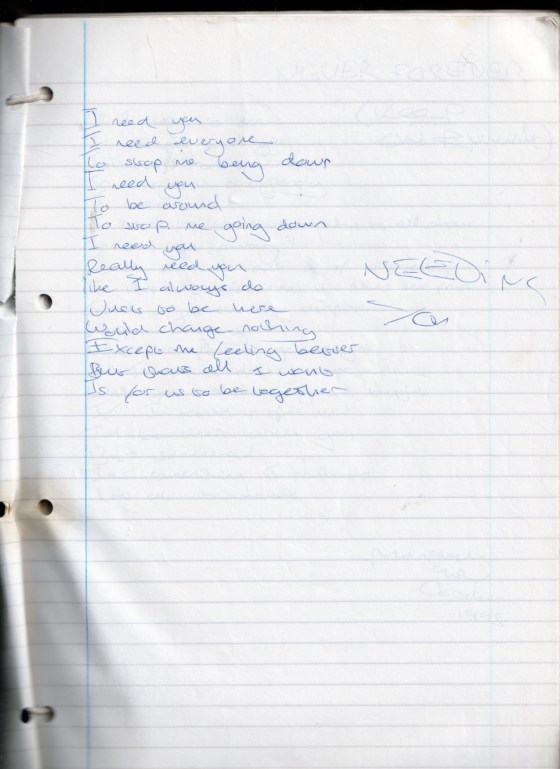 I need you
I need everyone
To stop me being down
I need you
To be around
To stop me going down
I need you
Really need you
like I always do
to be here
Would change nothing
Except me feeling better
But thats all I want
Is for us to be together
NEEDiNG
You